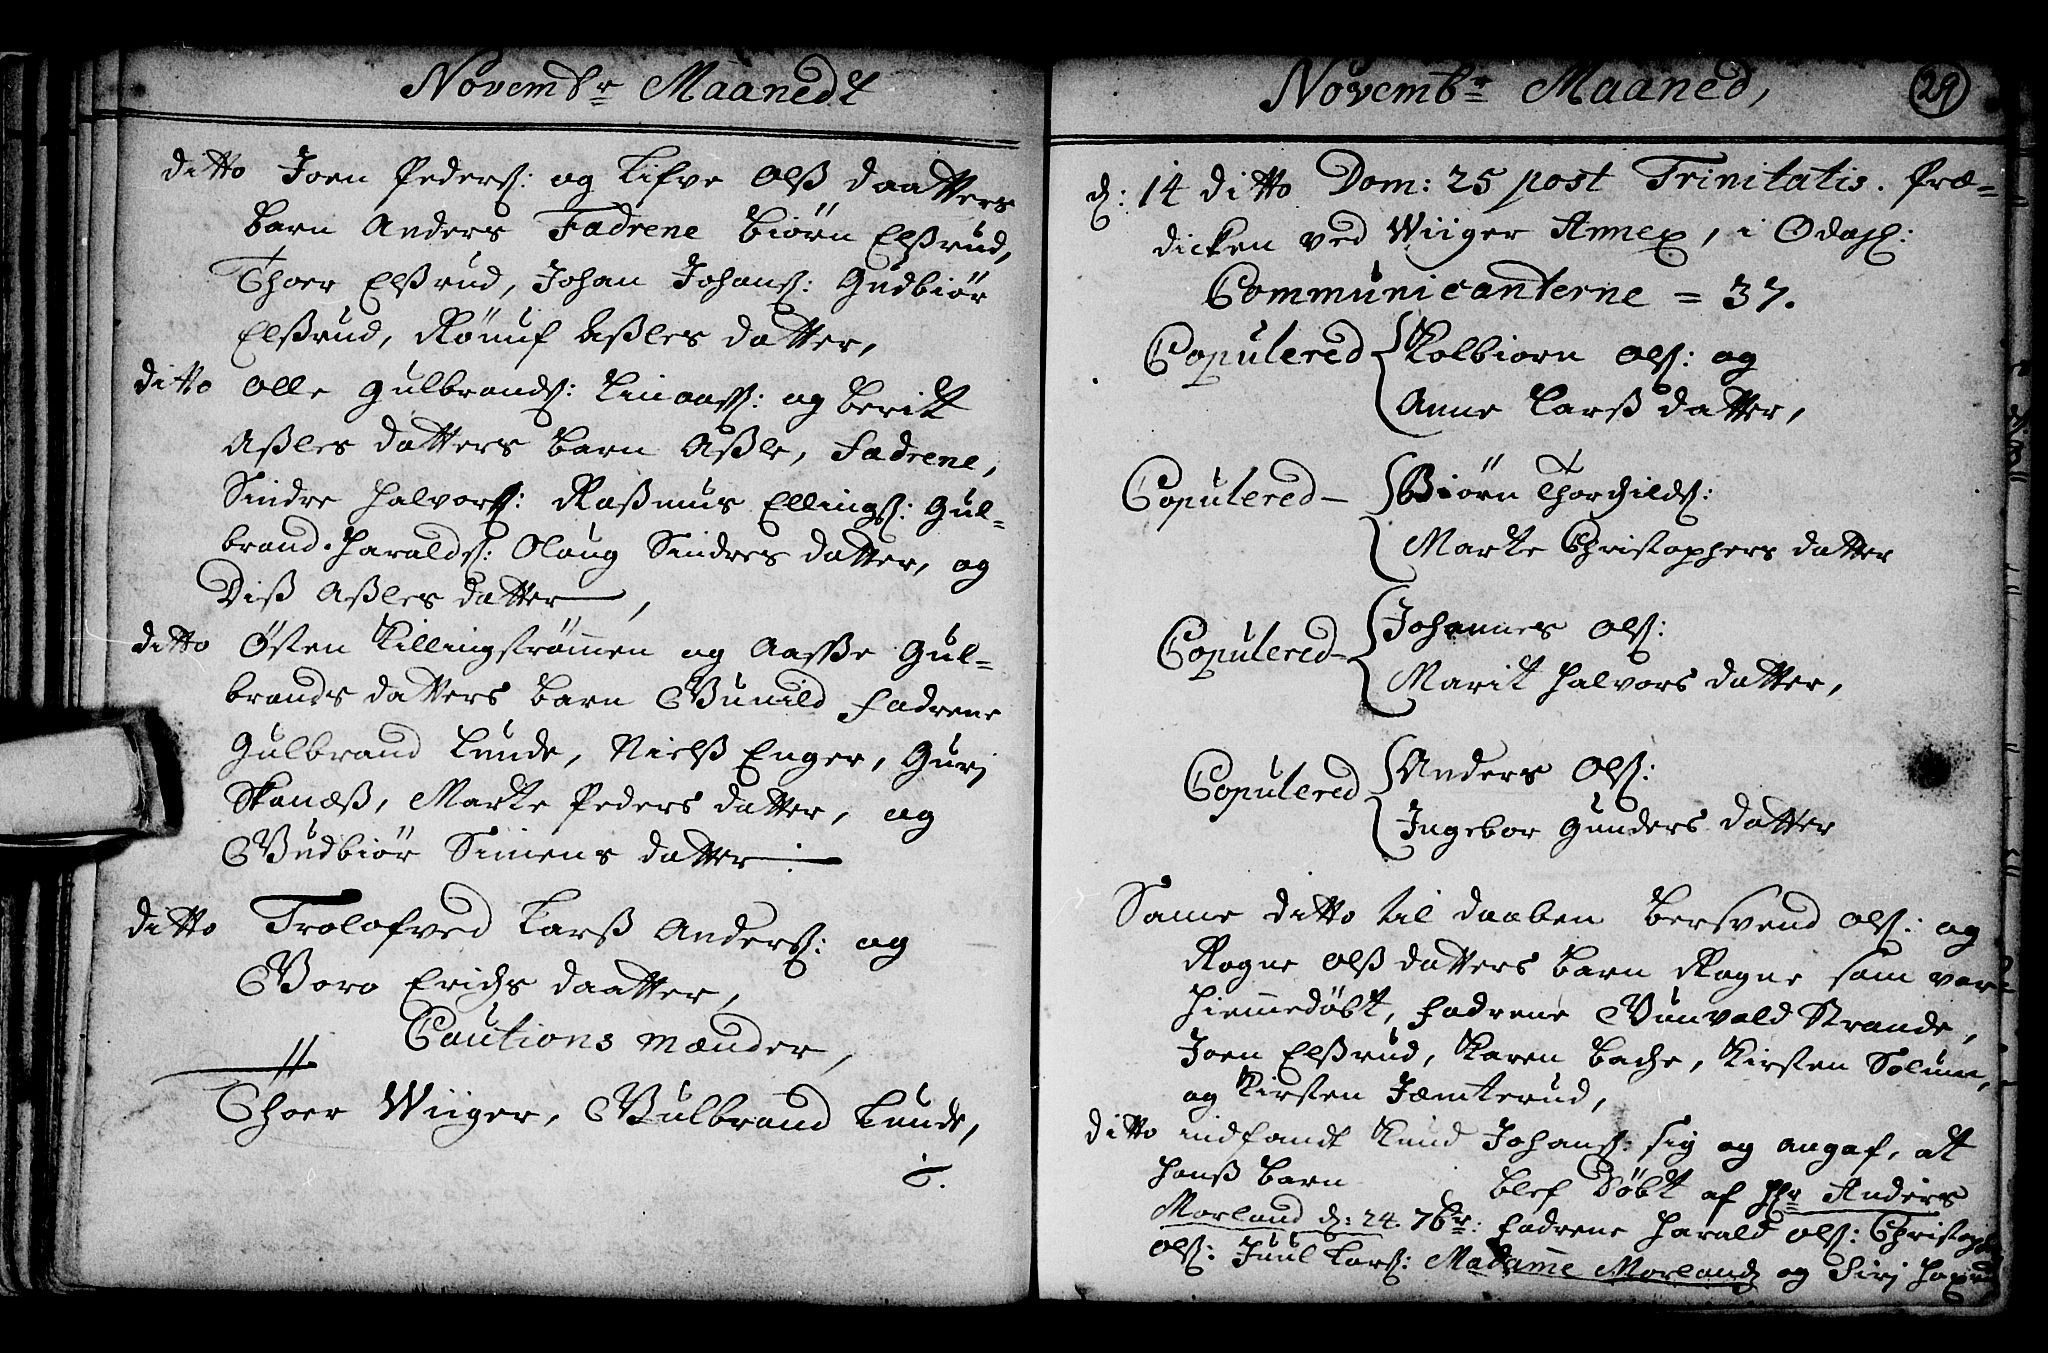 Novembr Maanedt
ditto Joen Peders: og Lifve Olß daatters
barn Anders Fadrene Biørn Elßrud,
Thoer Elßrud, Johan Johans: Gudbiør
Elßrud, Rönuf Aßles datter,
ditto Olle Gulbrands: Linaas: og Berit
Aßles datters barn Aßle, Fadrene,
Sindre Halvors: Raßmus Ellings: Gul=
brand Haralds: Olaug Sindres datter, og
Diß Aßles datter,
ditto Østen Killingstrømen og Aasße Gul=
brands datters barn Gunild Fadrene
Gulbrand Lunde, Nielß Enger, Gurj
Skanæß, Marte Peders datter, og
Gudbiør Simens datter
ditto Trolofved Larß Anders: og
Goro Erichs daatter,
Cautions mænder,
Thoer Wiiger, Gulbrand Lunde,
Novembr Maaned, 29
d: 14 ditto Dom: 25 post Trinitatis. Præ=
dicken ved Wiiger Annex, i Odahl:
Communicanterne = 37.
Copulered Kolbiorn Ols: og
Anne Larß datter,
Copulered Biørn Thorchilds:
Marte Christophers datter
Copulered Johannes Ols:
Marit Halvors datter,
Copulered Anders Ols:
Ingebor Gunders datter
Same ditto til daaben Bersvend Ols: og
Rogne Olß datters barn Rogne som var
hiemmedøbt, Fadrene Gunvald Strande,
Joen Elßrud, Karen Bache, Kirsten Solum,
og Kirsten Jæmterud,
ditto indfandt Knud Johans: sig og angaf, at
hanß barn blef Døbt af Hr Anders
Morland d: 24 7br: Fadrene Harald Ols:
Ols: Juul Lars: Madame Morland og Sirj